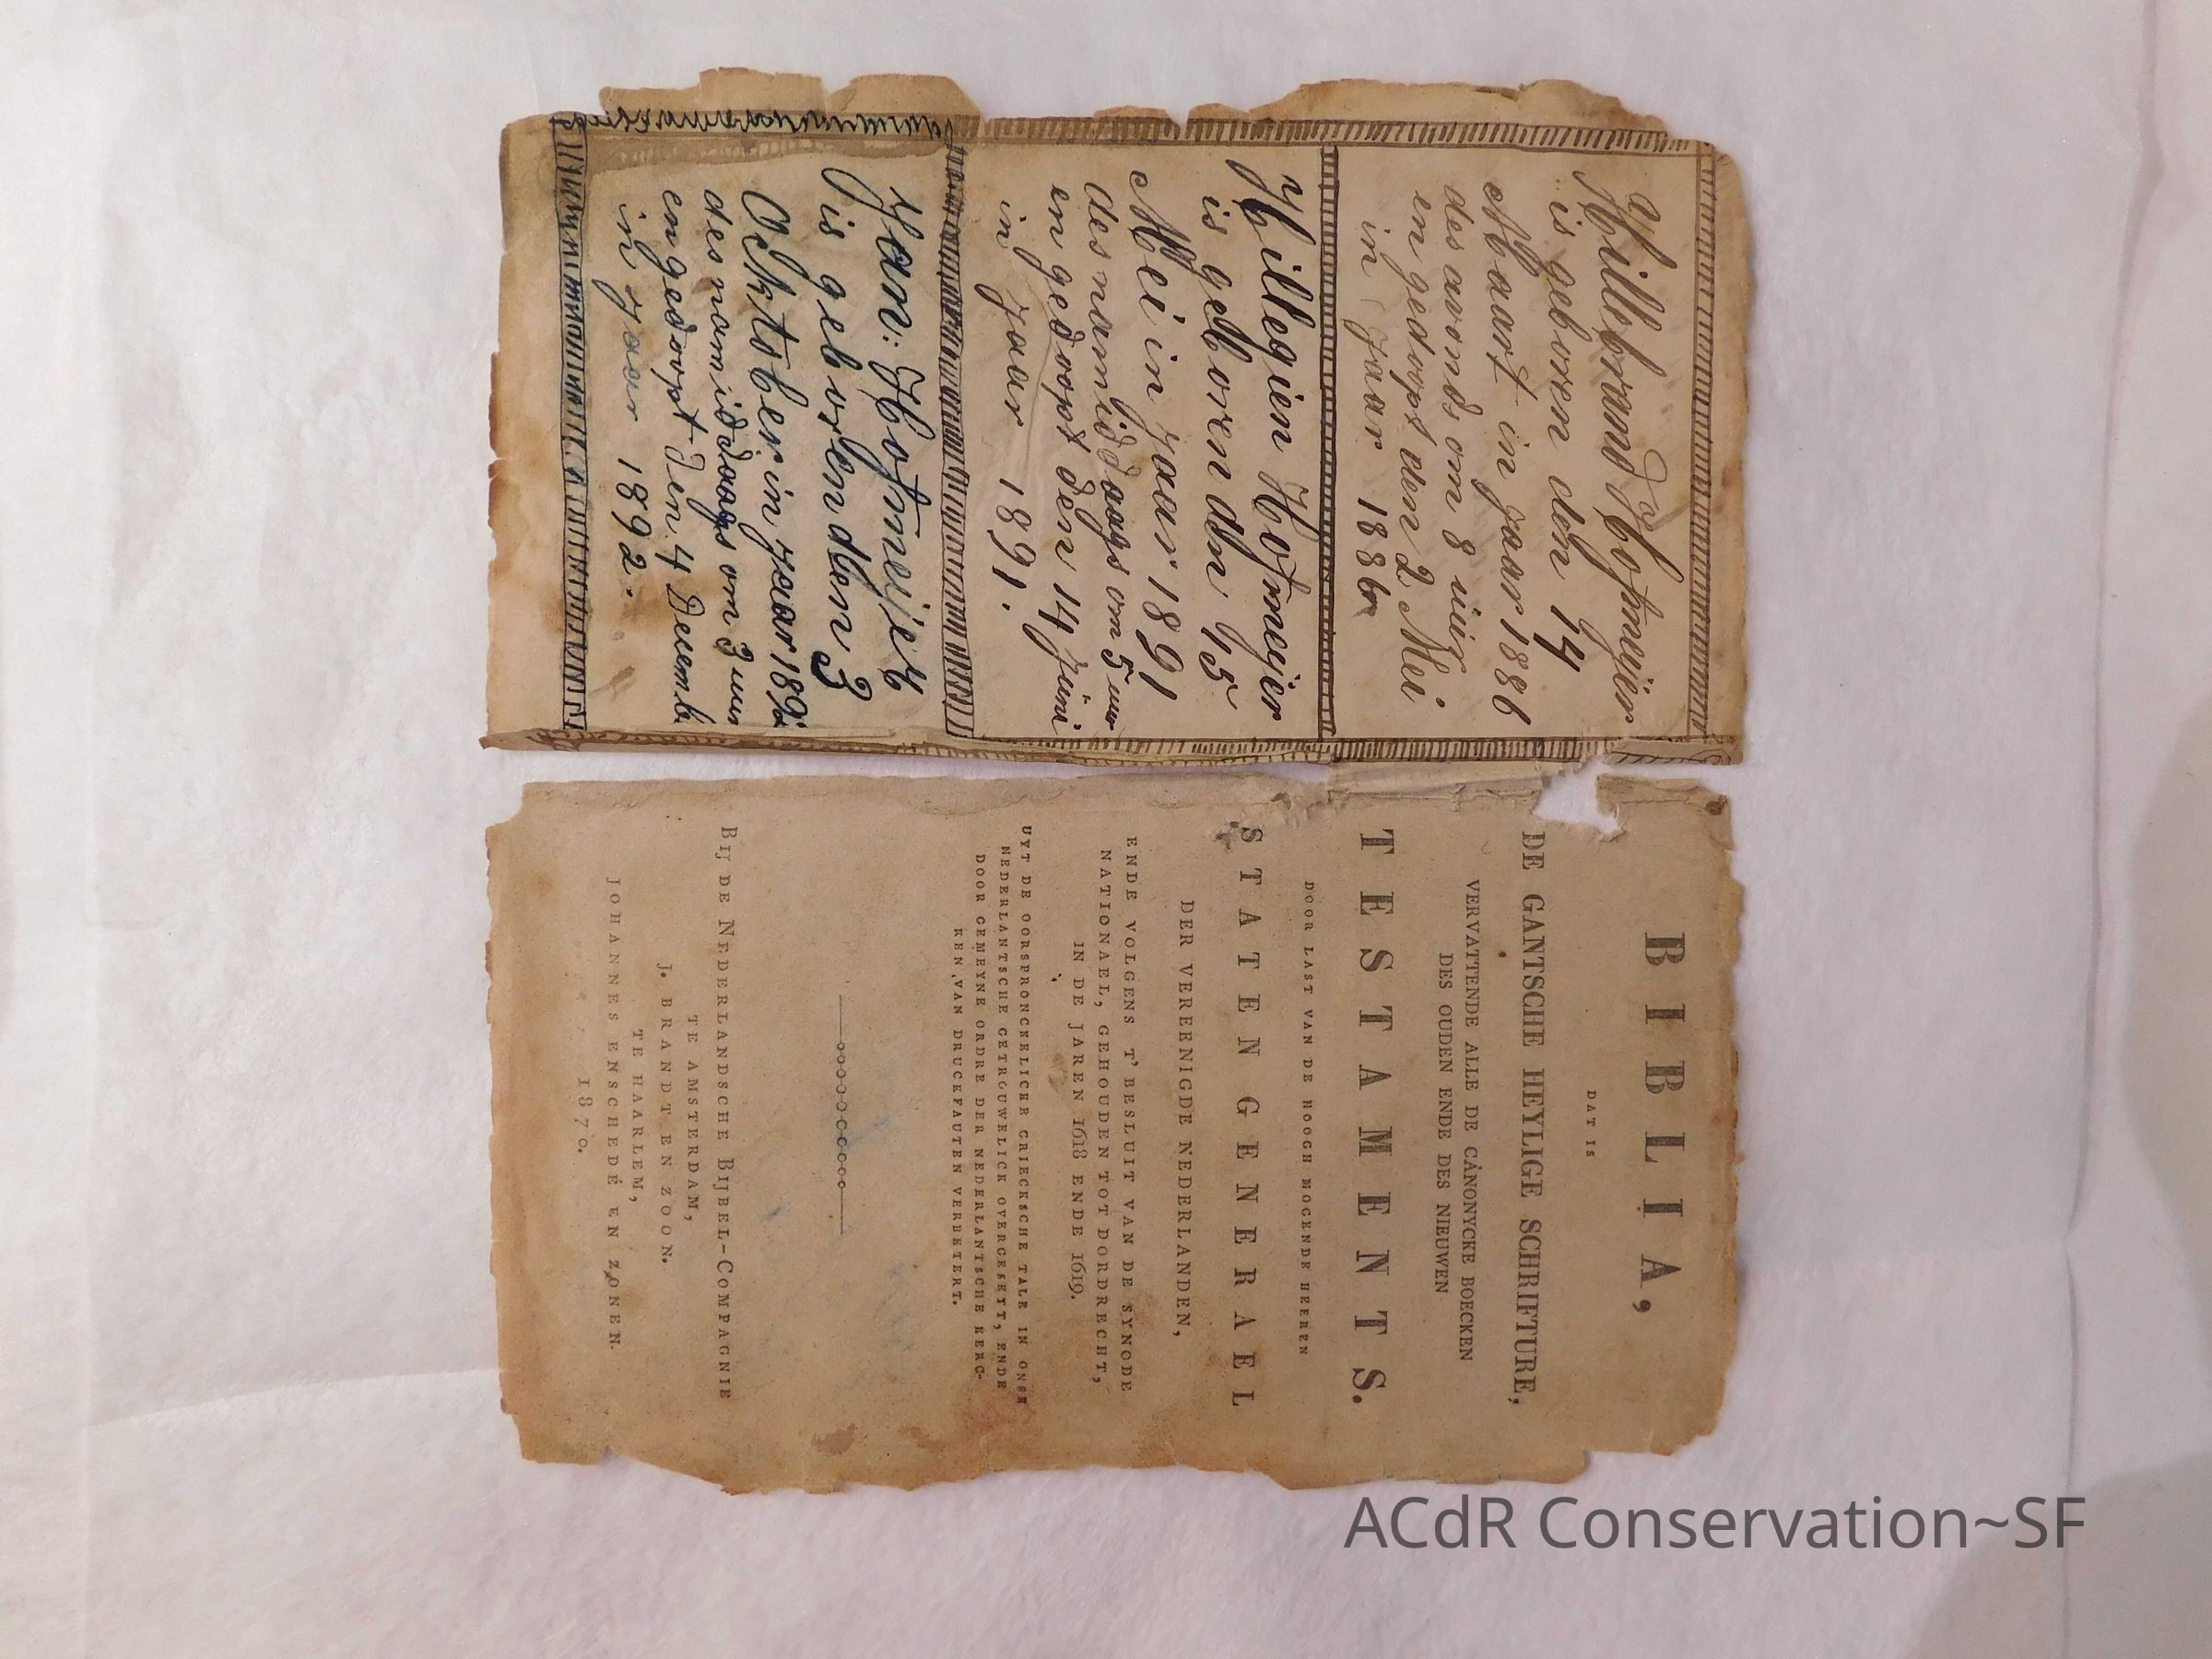 Hillebrand Hofmeijer
is geboren den 14
Maart in jaar 1886
des avonds om 8 uur
en gedoopt den 2 Mei
in jaar 1886
Hillegien Hofmeijer
is geboren den 15
Mei in jaar 1891
des namiddaags om 5 uur
en gedoopt den 14 Juni
in jaar 1891.
Jan: Hofmeijer
is geboren den 3
Oktober in jaar 1892
des namiddaags om 3 uur
en gedoopt den 4 Decemb
in jaar 1892.
BIBLIA,
DAT IS
DE GANTSCHE HEYLIGE SCHRIFTURE,
VERVATTENDE ALLE DE CANONYCKE BOECKEN
DES OUDEN ENDE DES NIEUWEN
TESTAMENTS.
DOOR LAST VAN DE HOOGH MOGENDE HEEREN
STATEN GENERAEL
DER VEREENIGDE NEDERLANDEN,
ENDE VOLGENS T' BESLUIT VAN DE SYNODE
NATIONAEL, GEHOUDEN TOT DORDRECHT,
IN DE JAREN 1618 ENDE 1619.
UYT DE OORSPRONCKELICKE GRIECKSCHE TALE IN ONSE
NEDERLANTSCHE GETROUWELICK OVERGESETT, ENDE
DOOR GEMEYNE ORDRE DER NEDERLANTSCHE KERC-
KEN, VAN DRUCKFAUTEN VERBETERT.
BIJ DE NEDERLANDSCHE BIJBEL-COMPAGNIE
TE AMSTERDAM,
J. BRANDT EN ZOON.
TE HAARLEM,
JOHANNES ENSCHEDÉ EN ZONEN.
1870.
ACdR Conservation~SF